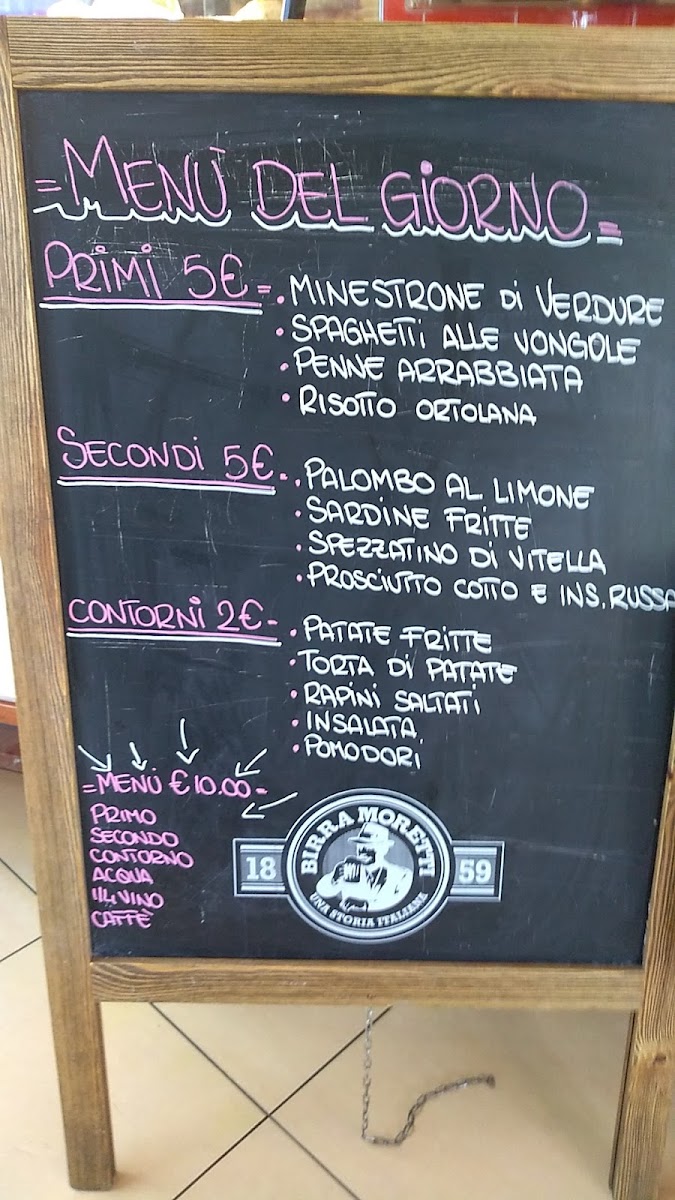 =MENÙ DEL GIORNO=
PRIMI 5€=
• MINESTRONE DI VERDURE
• SPAGHETTI ALLE VONGOLE
• PENNE ARRABBIATA
• RISOTTO ORTOLANA
SECONDI 5€-
• PALOMBO AL LIMONE
• SARDINE FRITTE
• SPEZZATINO DI VITELLA
• PROSCIUTTO COTTO E INS. RUSSA
CONTORNI 2€-
• PATATE FRITTE
• TORTA DI PATATE
• RAPINI SALTATI
• INSALATA
• POMODORI
=MENÙ €10.00=
PRIMO
SECONDO
CONTORNO
ACQUA
1/4 VINO
CAFFÈ
BIRRA MORETTI
18 59
UNA STORIA ITALIANA